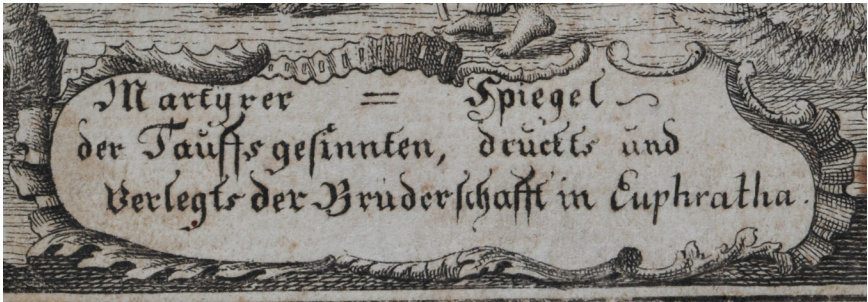 Martyrer = Spiegel
der Tauffs gesinnten, druckts und
Verlegts der Brüderschafft in Euphratha.